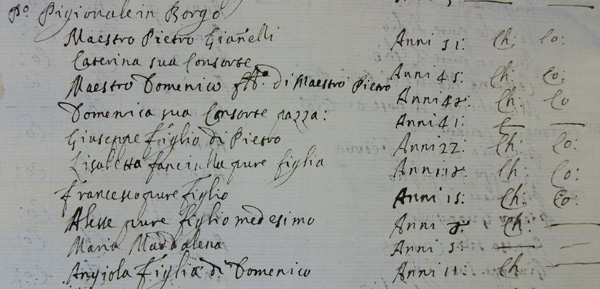 Po Pigionale in Borgo
Maestro Pietro Gianelli Anni 51: Ch: Co:
Caterina sua Consorte Anni 45: Ch: Co:
Maestro Domenico di Maestro Pietro Anni Ch: Co
Domenica sua Consorte pazza: Anni 41:
Giuseppe figlio di Pietro Anni 22: Ch: Co:
Lisabetta fanciulla pure figlia Anni Ch: Co:
Francesco pure figlio Anni 15: Ch: Co:
pure figlio medesimo Anni Ch:
Maria Maddalena Anni
Angiola Figlia di Domenico Anni 11: Ch